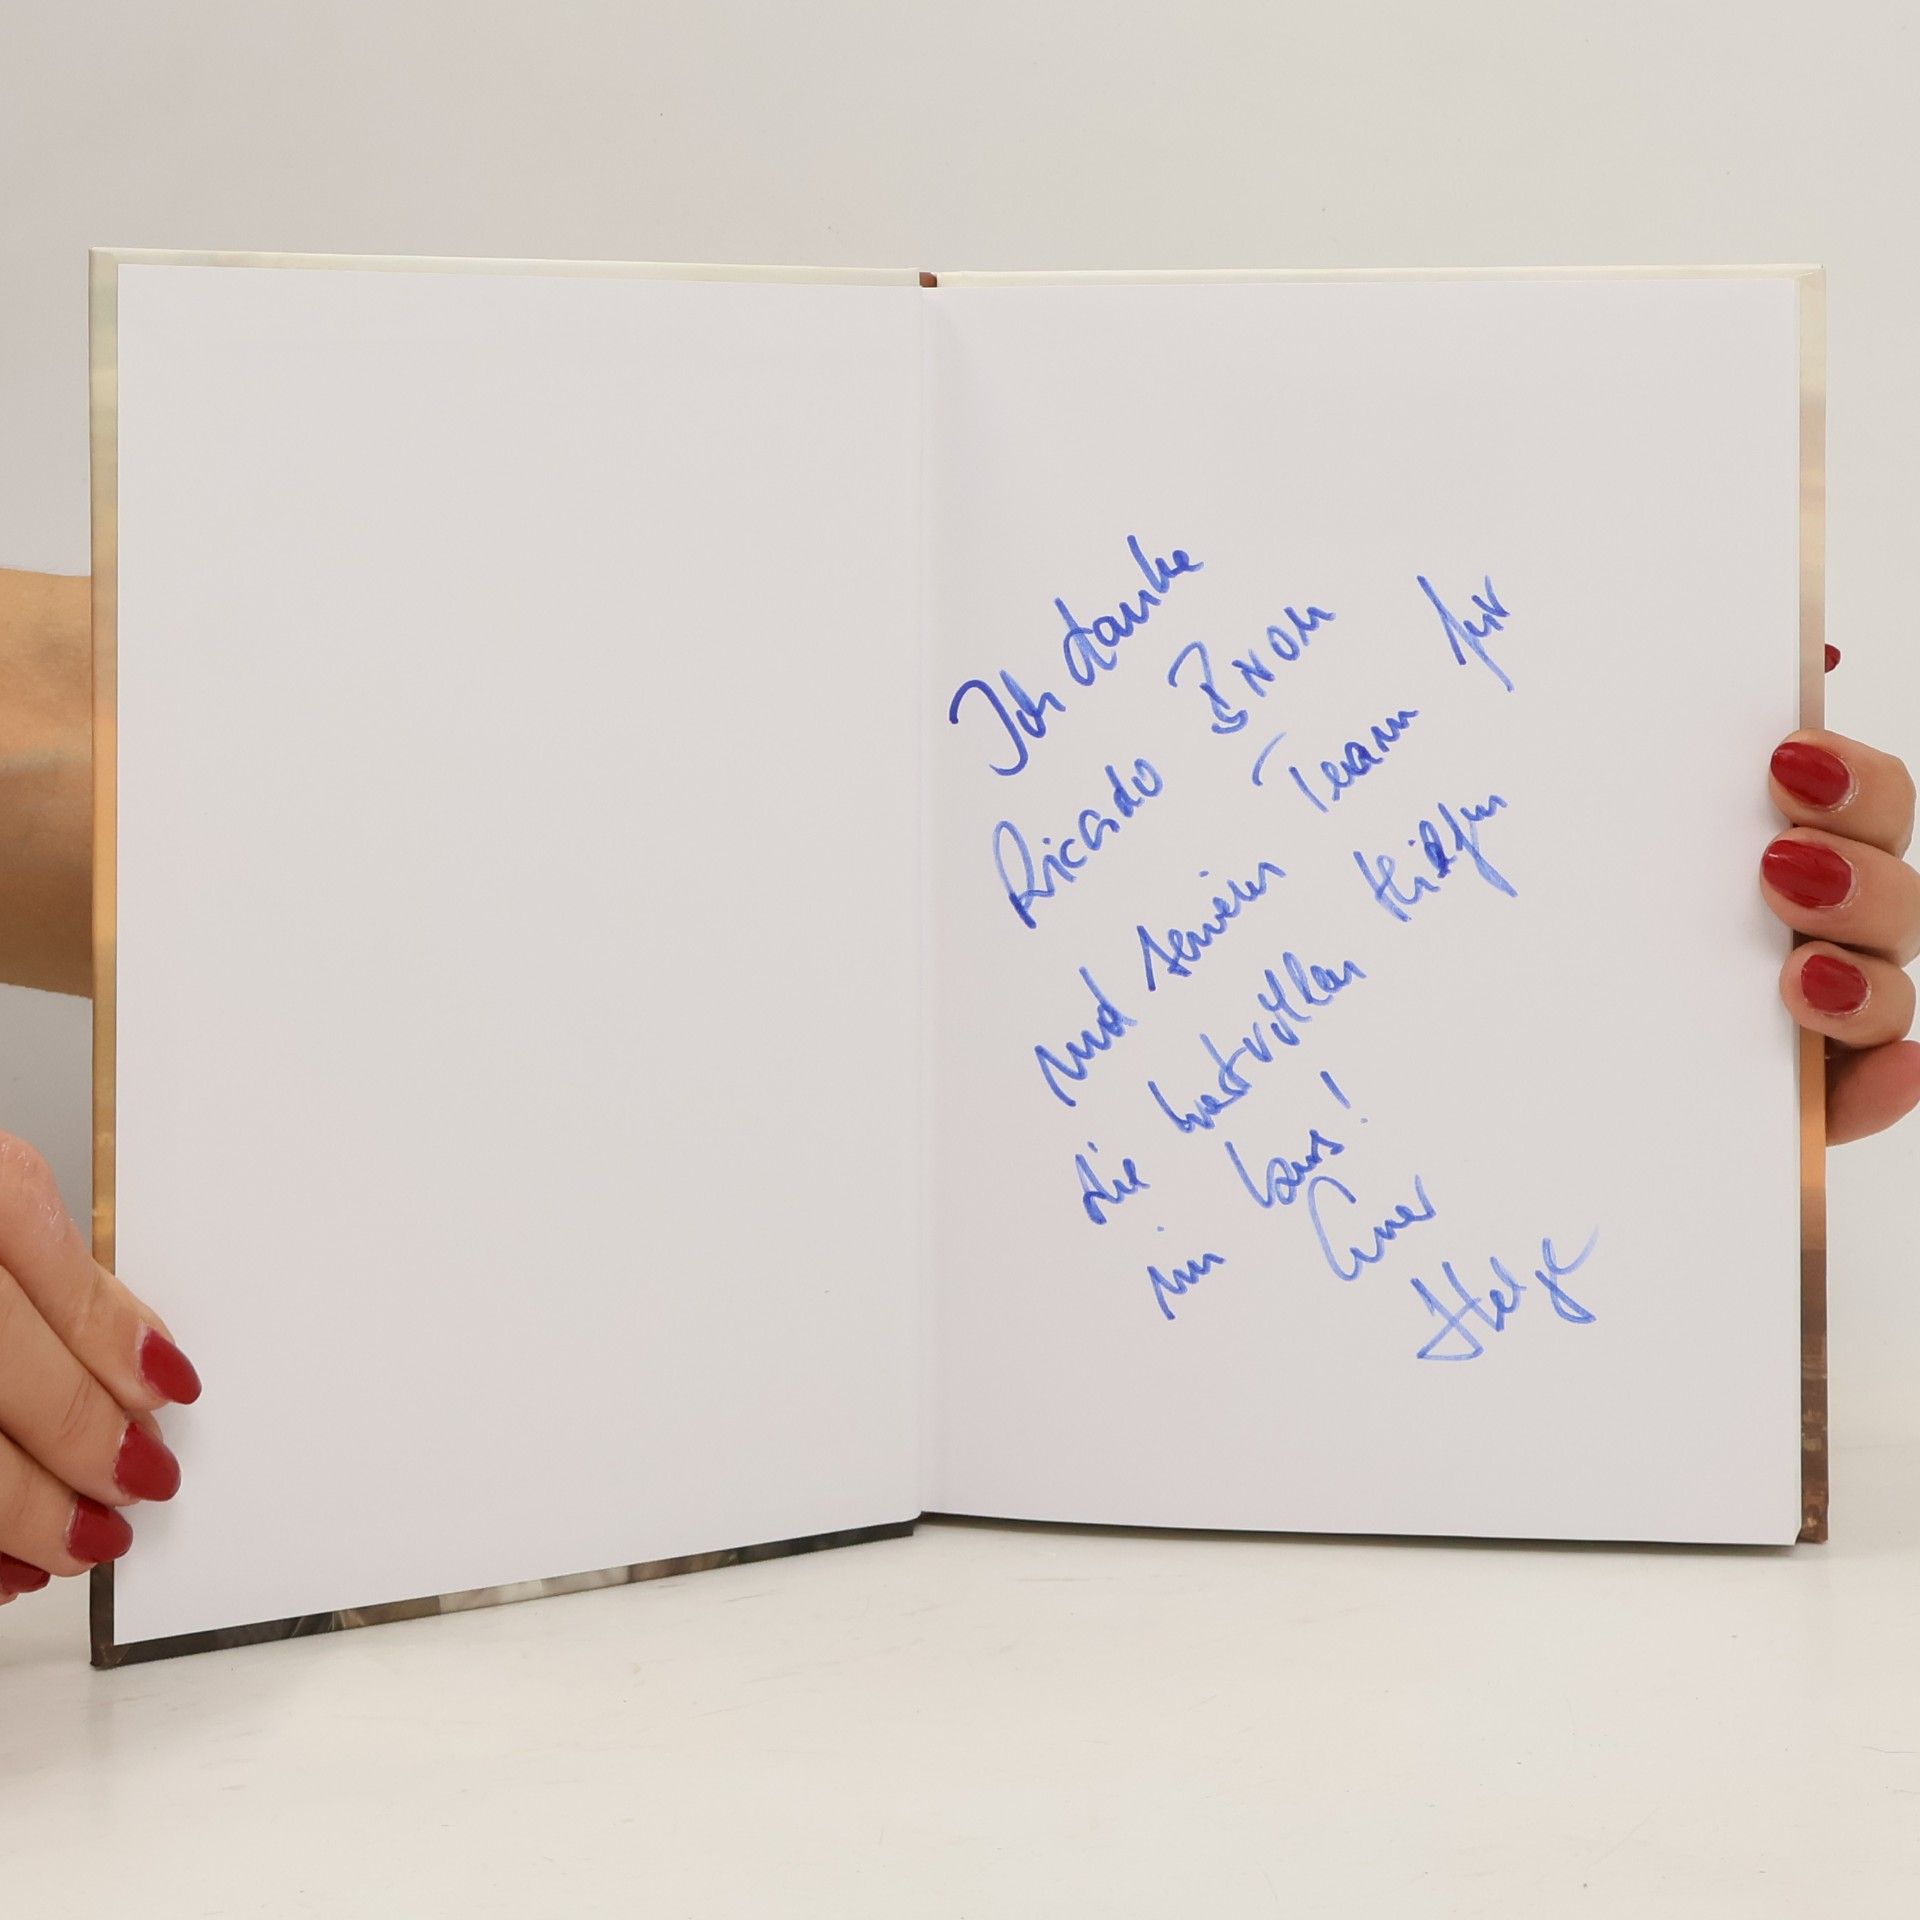 Ich danke
Ricardo Biron
und seinem Team für
die wertvollen Hilfen
im Kurs!
Euer
Helge